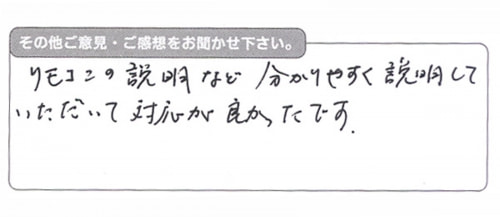 その他ご意見・ご感想をお聞かせ下さい。
リモコンの説明など分かりやすく説明して
いただいて対応が良かったです.